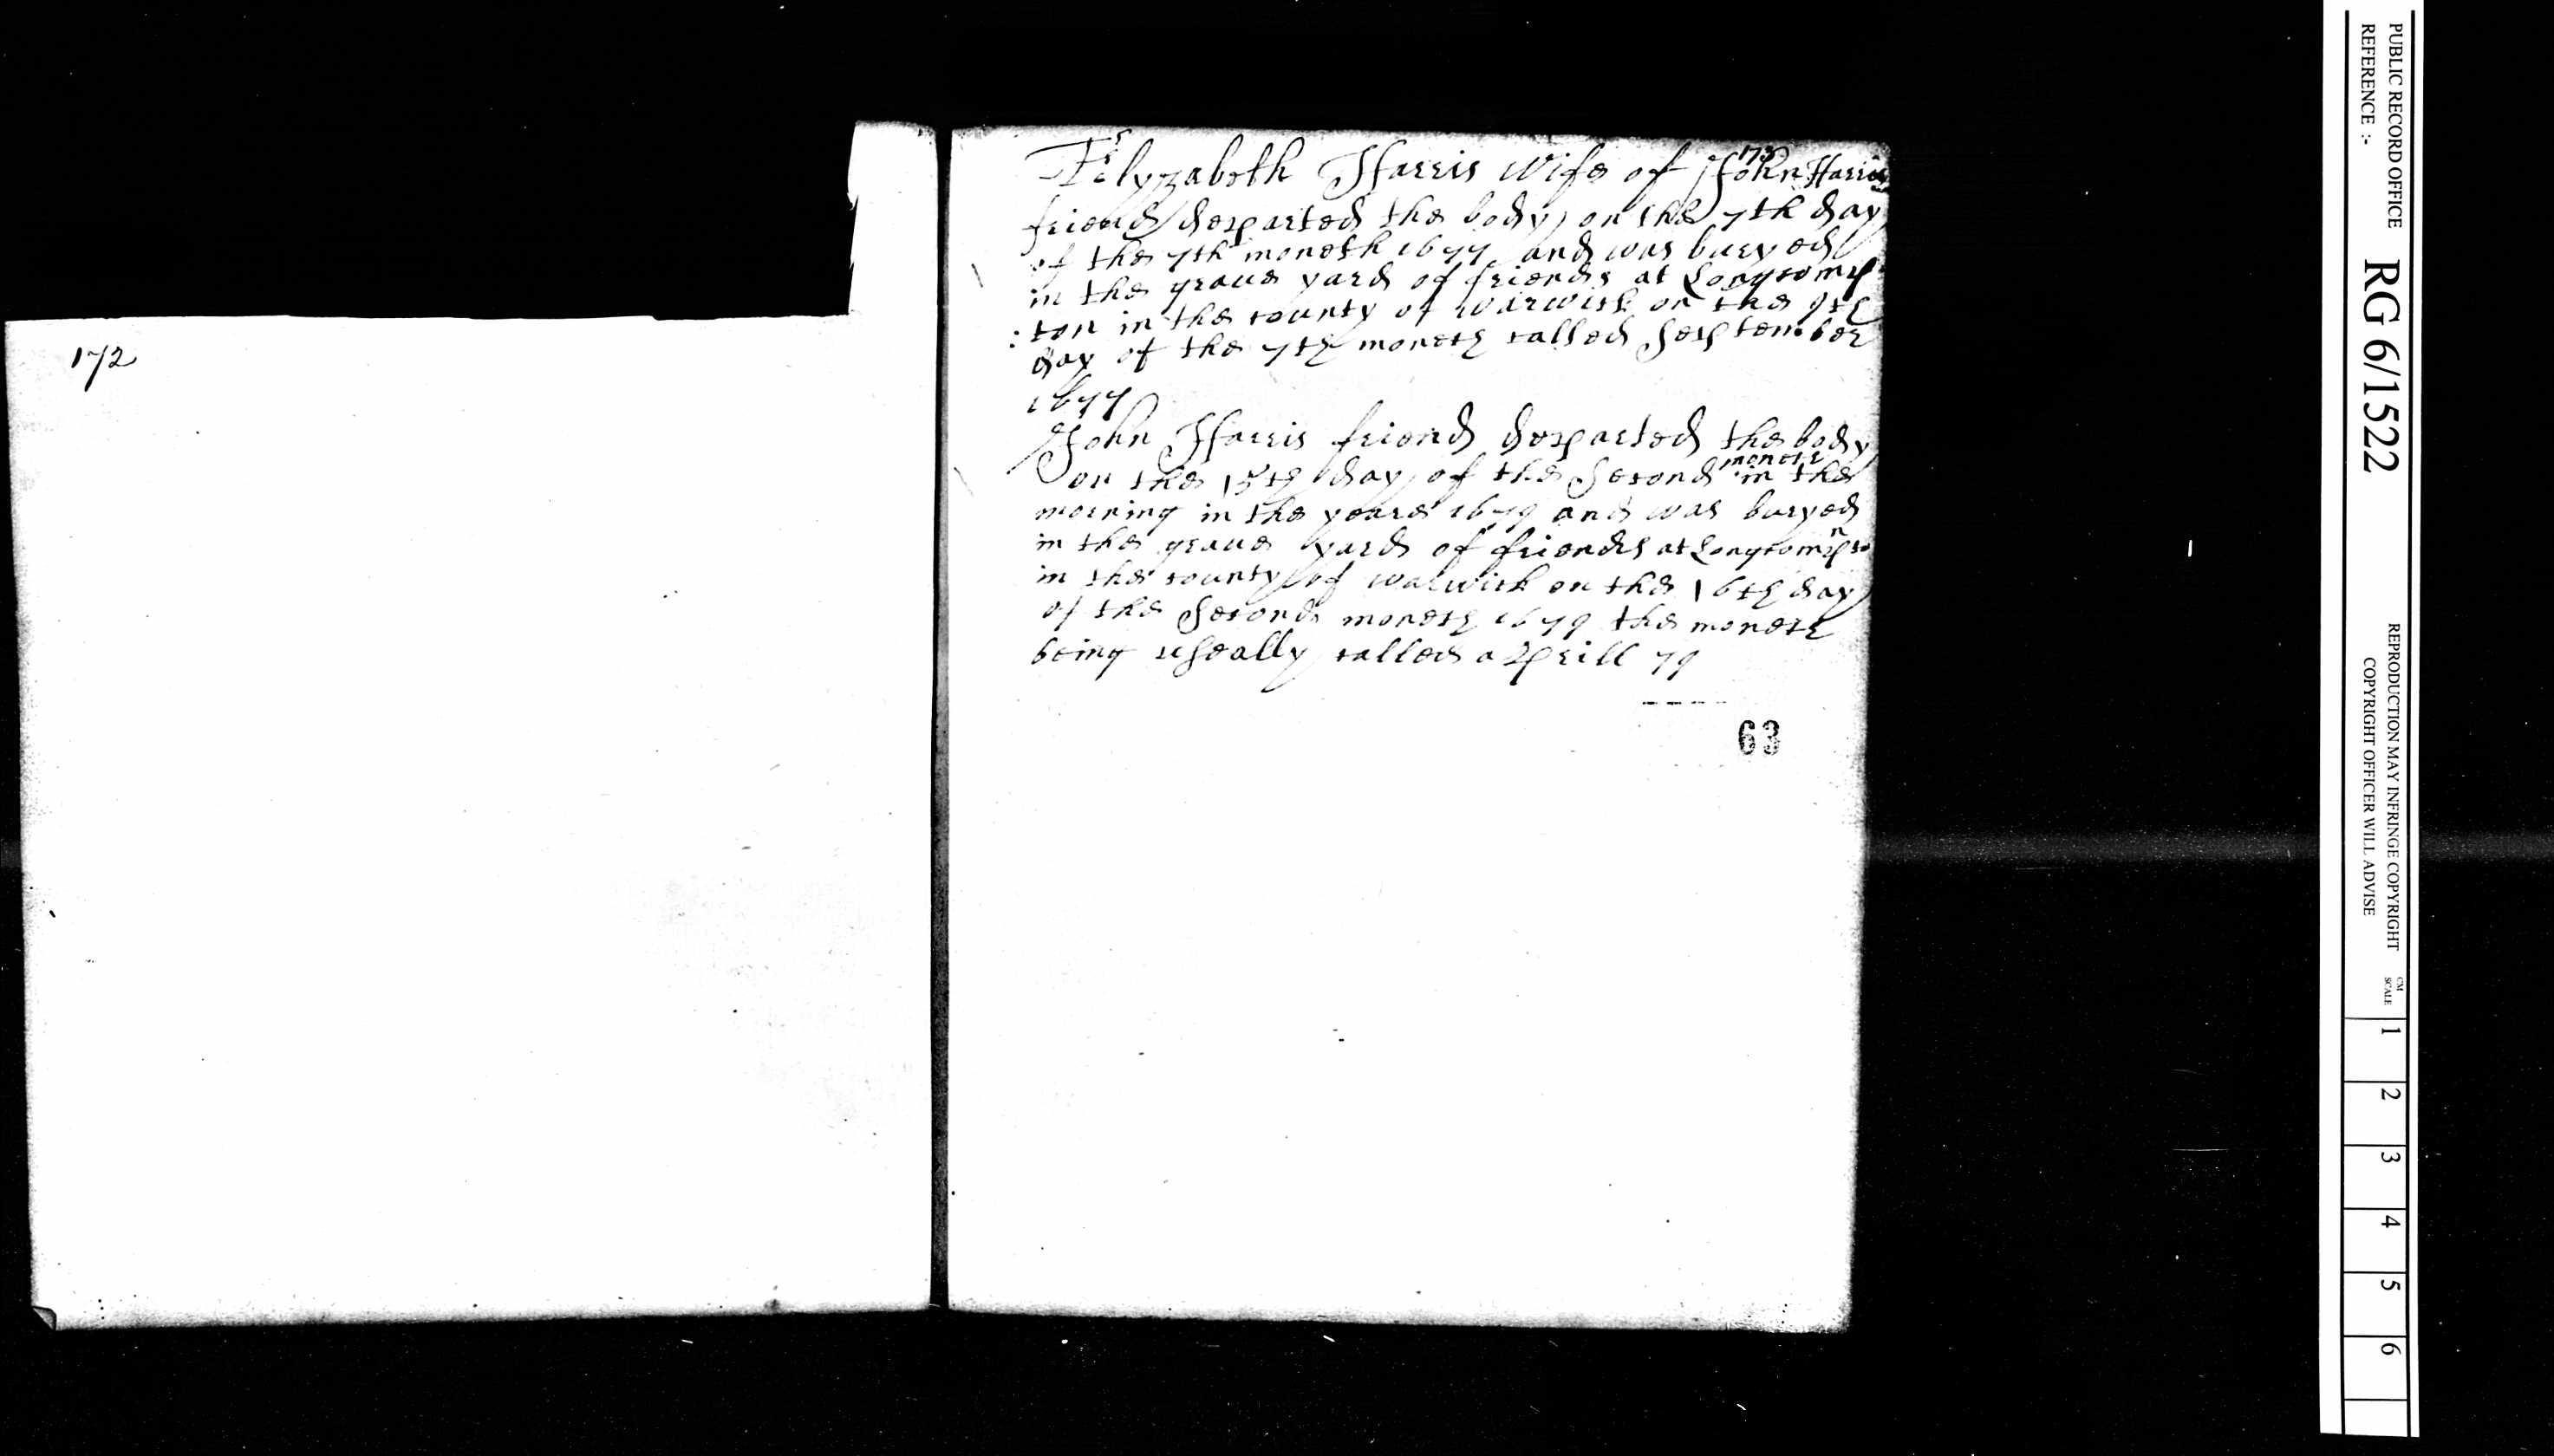 172
173
Elyzabeth Harris wife of John Harris
friend departed the body on the 7th day
of the 7th moneth 1677 and was buryed
in the graue yard of friends at Longcomp
:ton in the county of warwick on the 9th
day of the 7th moneth called September
1677
John Harris friend departed the body
on the 15th day of the Second moneth in the
morning in the yeare 1679 and was buryed
in the graue yard of friends at Longcompton
in the county of warwick on the 16th day
of the Second moneth 1679 the moneth
being useally called aprill 79
63
PUBLIC RECORD OFFICE
REFERENCE :-
RG 6/1522
REPRODUCTION MAY INFRINGE COPYRIGHT
COPYRIGHT OFFICER WILL ADVISE
CM
SCALE
1
2
3
4
5
6